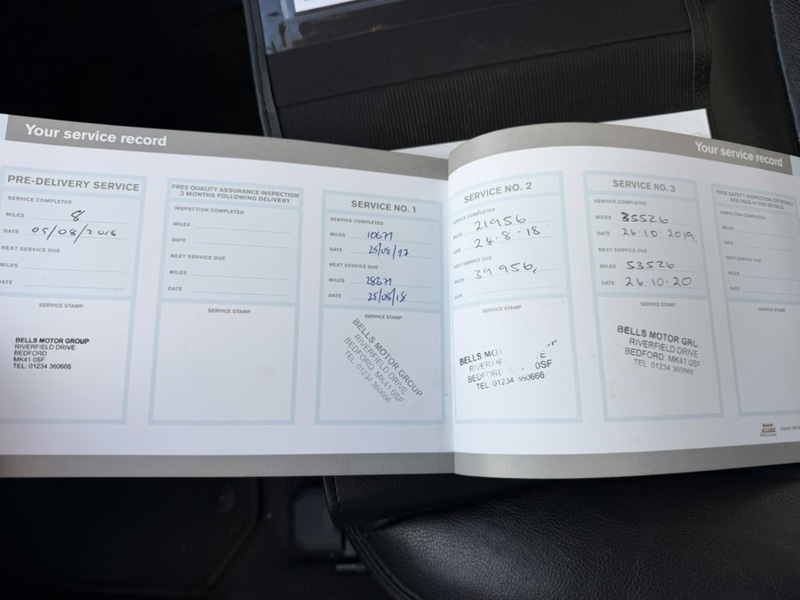 Your service record
PRE-DELIVERY SERVICE
SERVICE COMPLETED
MILES 8
DATE 05/08/2016
NEXT SERVICE DUE
MILES
DATE
SERVICE STAMP
BELLS MOTOR GROUP
RIVERFIELD DRIVE
BEDFORD
MK41 0SF
TEL: 01234 360666
FREE QUALITY ASSURANCE INSPECTION
3 MONTHS FOLLOWING DELIVERY
INSPECTION COMPLETED
MILES
DATE
NEXT SERVICE DUE
MILES
DATE
SERVICE STAMP
SERVICE NO. 1
SERVICE COMPLETED
MILES 10671
DATE 25/08/17
NEXT SERVICE DUE
MILES 28271
DATE 25/08/18
SERVICE STAMP
BELLS MOTOR GROUP
RIVERFIELD DRIVE
BEDFORD MK41 0SF
TEL: 01234 360666
Your service record
SERVICE NO. 2
SERVICE COMPLETED
MILES 21956
DATE 24.8.18.
NEXT SERVICE DUE
MILES 39956
DATE
SERVICE STAMP
BELLS MO
BEDFORD 0SF
TEL 01234 360666
SERVICE NO. 3
SERVICE COMPLETED
MILES 35526
DATE 26.10.2019
NEXT SERVICE DUE
MILES 53526
DATE 26.10.20
SERVICE STAMP
BELLS MOTOR
RIVERFIELD DRIVE
BEDFORD MK41 0SF
TEL: 01234 360666
FREE SAFETY INSPECTION (OPTIONAL)
SERVICE COMPLETED
MILES
DATE
NEXT SERVICE DUE
MILES
DATE
SERVICE STAMP